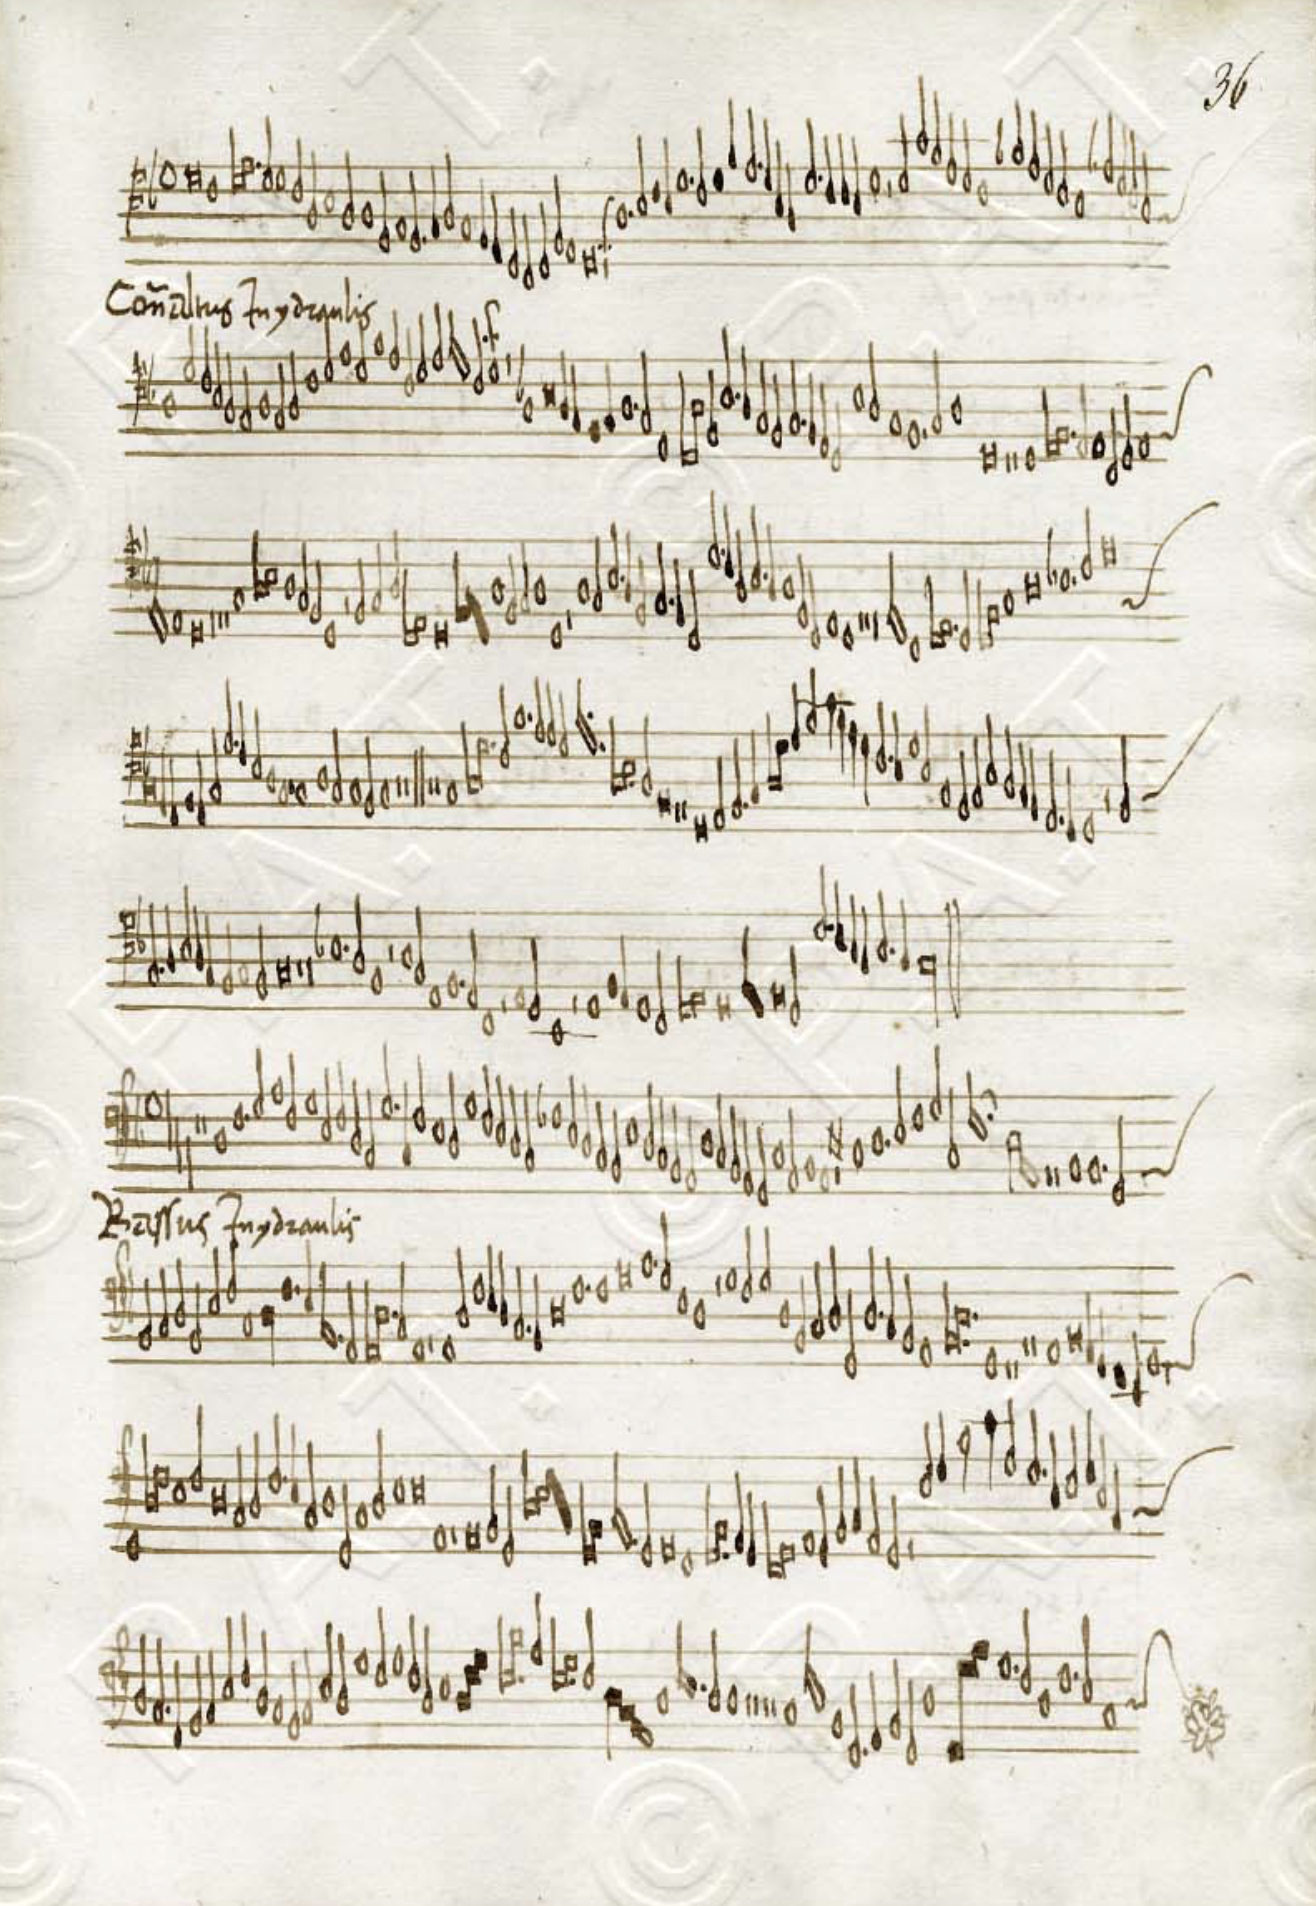 36
Coñaltus Inydraulis
Bassus Inydraulis